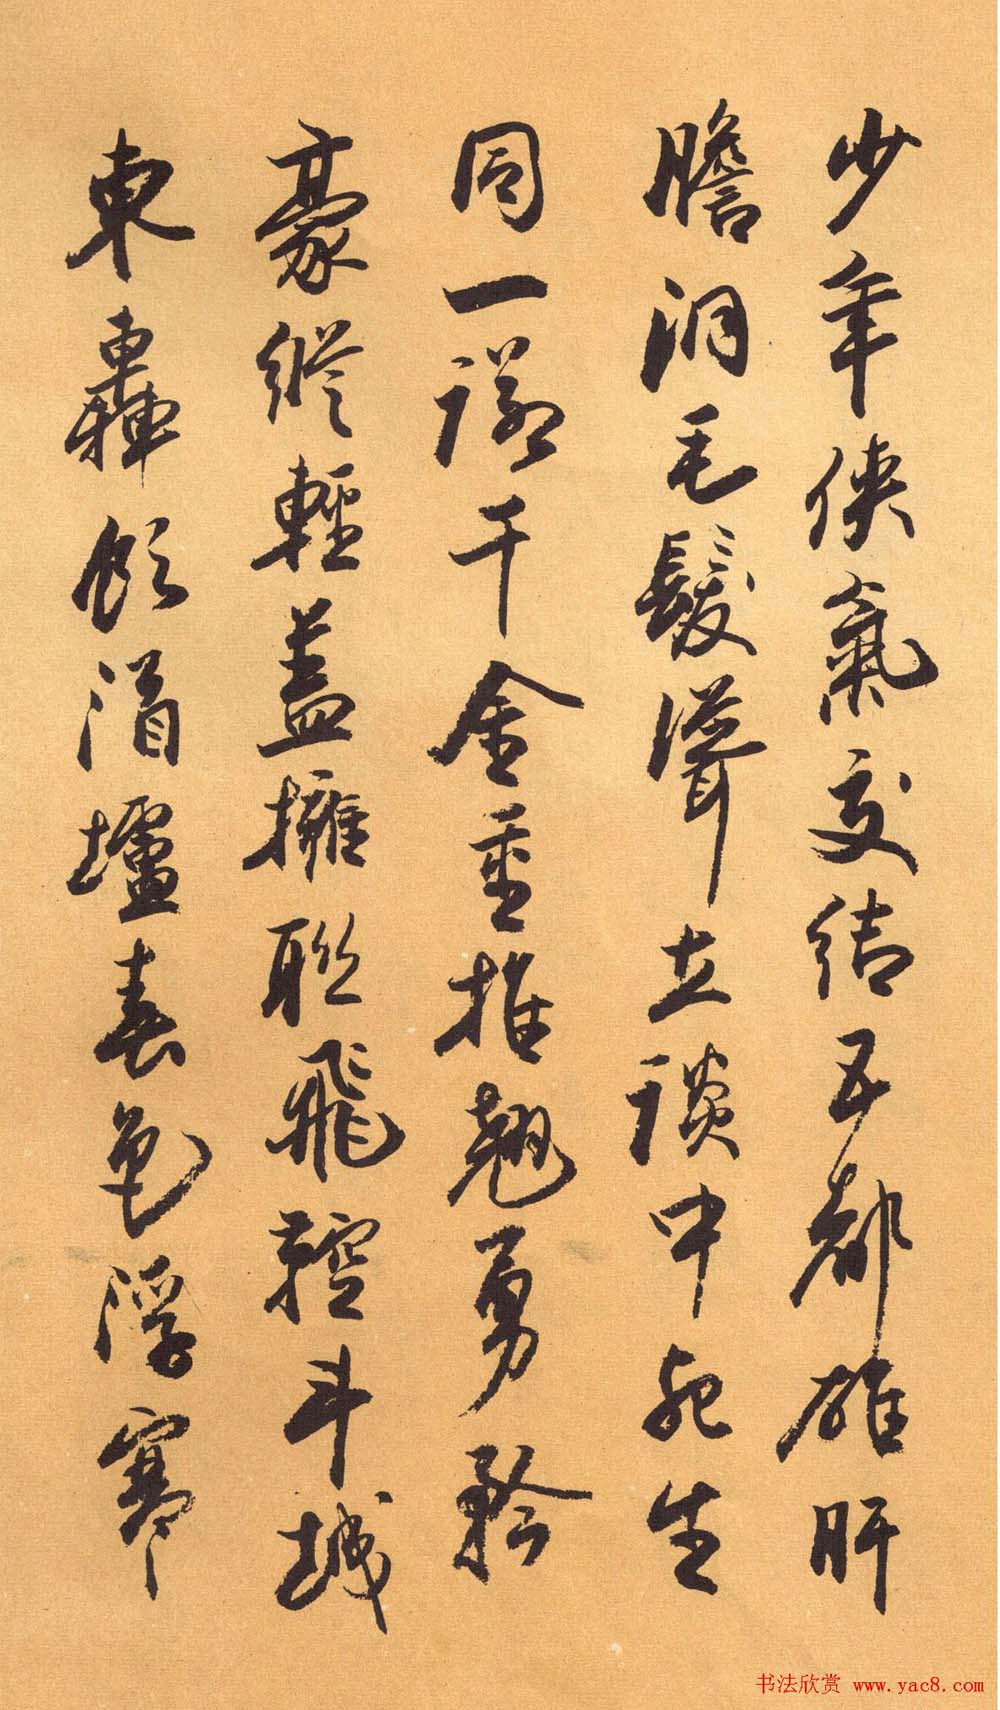 少年俠氣交結五都雄肝
膽洞毛髮聳立談中死生
同一諾千金重推翹勇矜
豪縱輕盖擁聯飛鞚斗城
東轟飲酒壚春色浮寒
书法欣赏 www.yac8.com